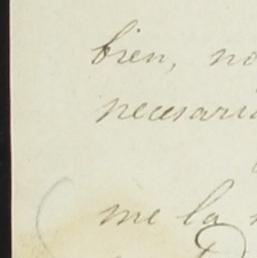 bien, no
necesari
me la